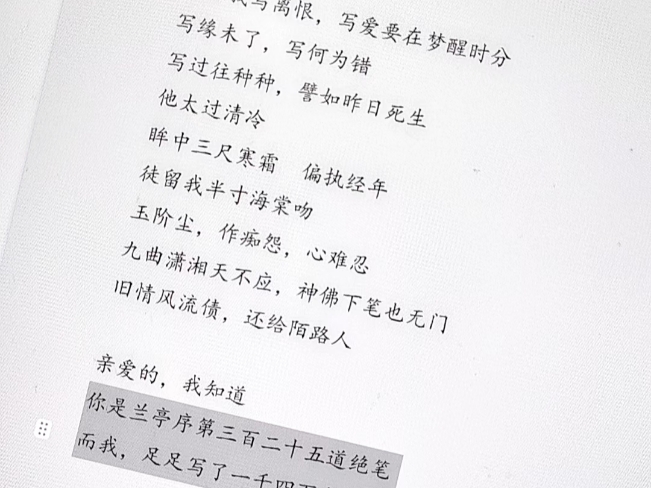 我写离恨，写爱要在梦醒时分
写缘未了，写何为错
写过往种种，譬如昨日死生
他太过清冷
眸中三尺寒霜 偏执经年
徒留我半寸海棠吻
玉阶尘，作痴怨，心难忍
九曲潇湘天不应，神佛下笔也无门
旧情风流债，还给陌路人
亲爱的，我知道
你是兰亭序第三百二十五道绝笔
而我，足足写了一千四百